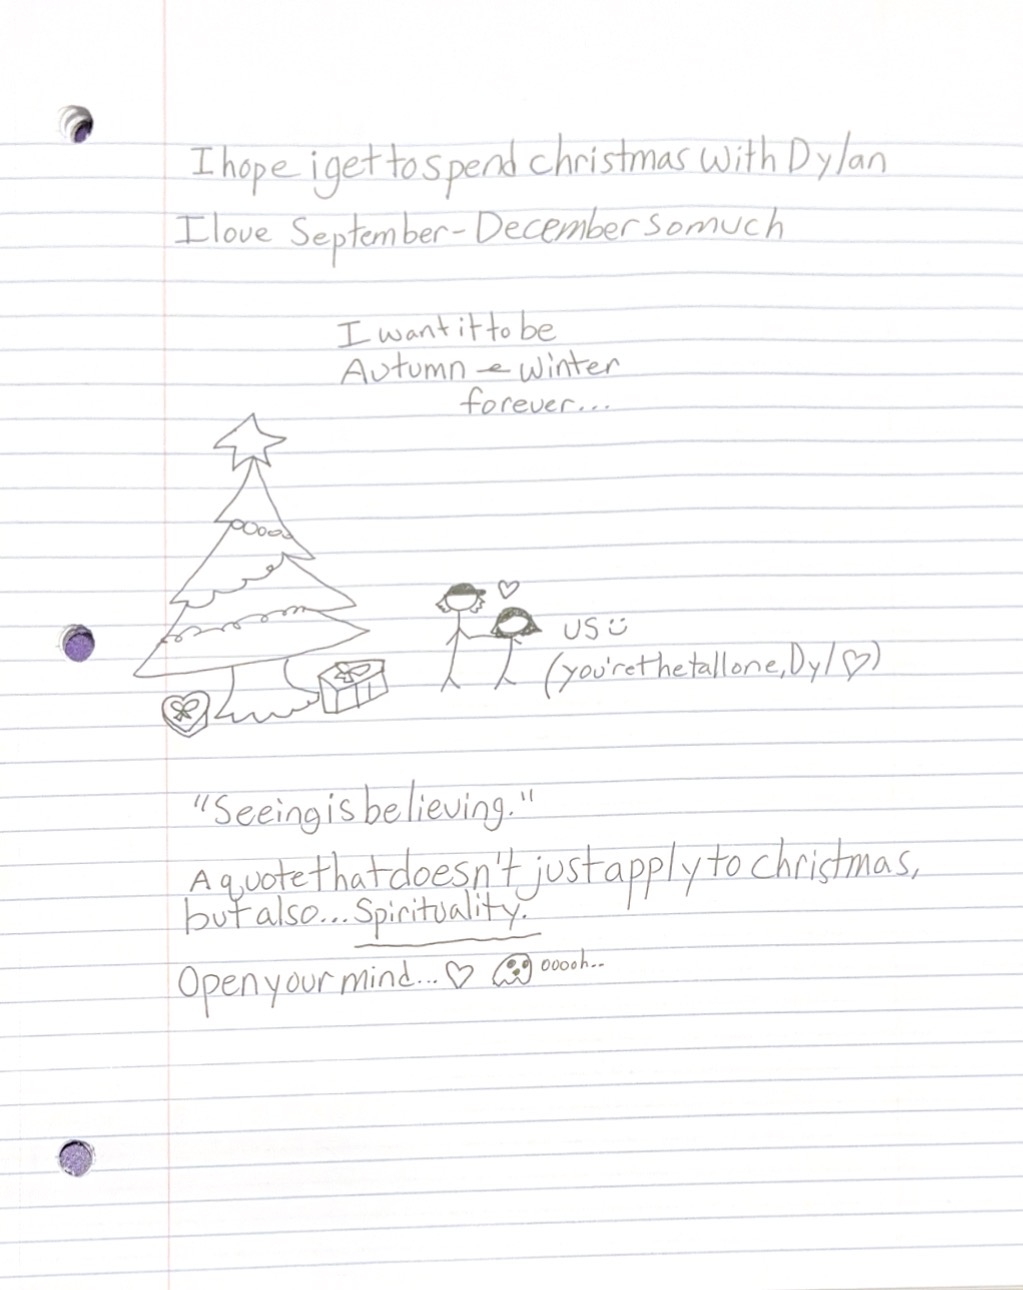 I hope i get to spend christmas with Dylan
I love September - December so much
I want it to be
Autumn & Winter
forever...
US
(you're the tall one, Dyl ♡)
"Seeing is believing."
A quote that doesn't just apply to christmas,
but also... Spirituality.
Open your mind... ♡ ooooh..